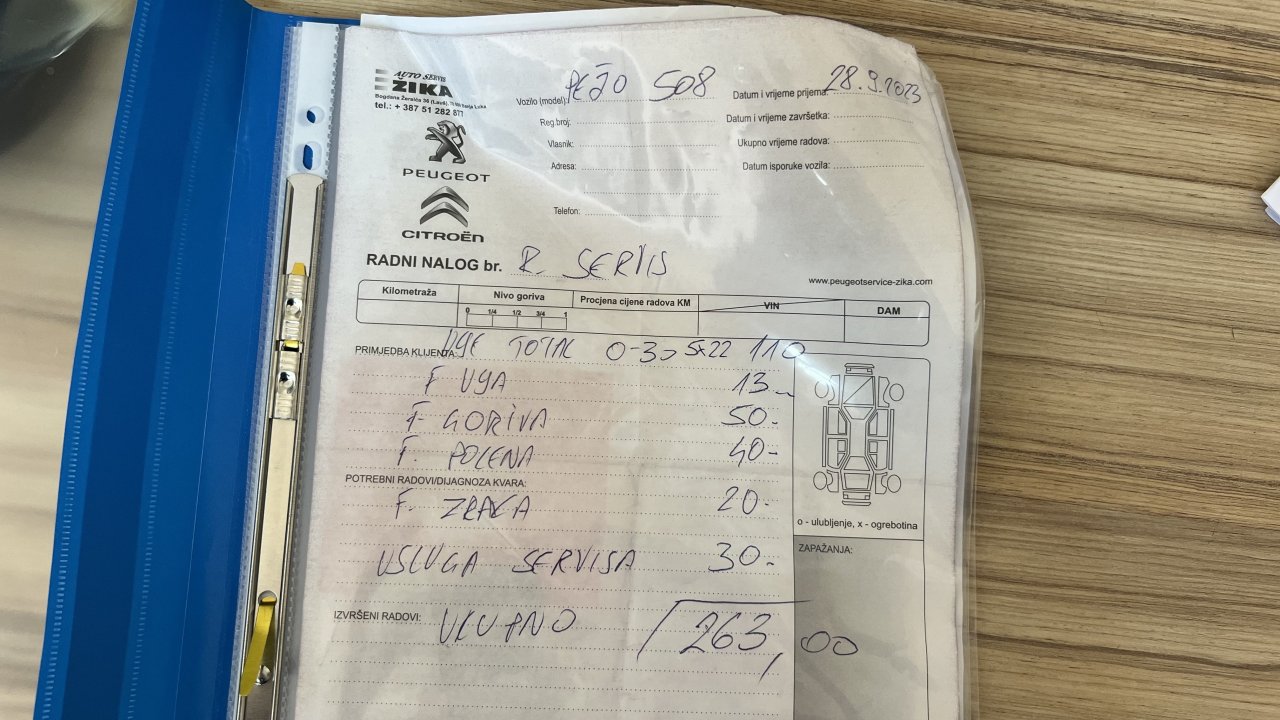 AUTO SERVIS
ZIKA
Bogdana Žerajića 36 (Lauš), Banja Luka
tel.: + 387 51 282 877
PEUGEOT
CITROËN
Vozilo (model): PEŽO 508
Reg.broj:
Vlasnik:
Adresa:
Telefon:
Datum i vrijeme prijema: 28.9.2023
Datum i vrijeme završetka:
Ukupno vrijeme radova:
Datum isporuke vozila:
RADNI NALOG br. R SERVIS
www.peugeotservice-zika.com
Kilometraža Nivo goriva Procjena cijene radova KM VIN DAM
0 1/4 1/2 3/4 1
PRIMJEDBA KLIJENTA: ULJE TOTAL 0-30 5x22 110
F ULJA 13-
F GORIVA 50-
F. POLENA 40-
POTREBNI RADOVI/DIJAGNOZA KVARA:
F. ZRAKA 20-
USLUGA SERVISA 30-
o - ulubljenje, x - ogrebotina
ZAPAŽANJA:
IZVRŠENI RADOVI: UKUPNO 263,00